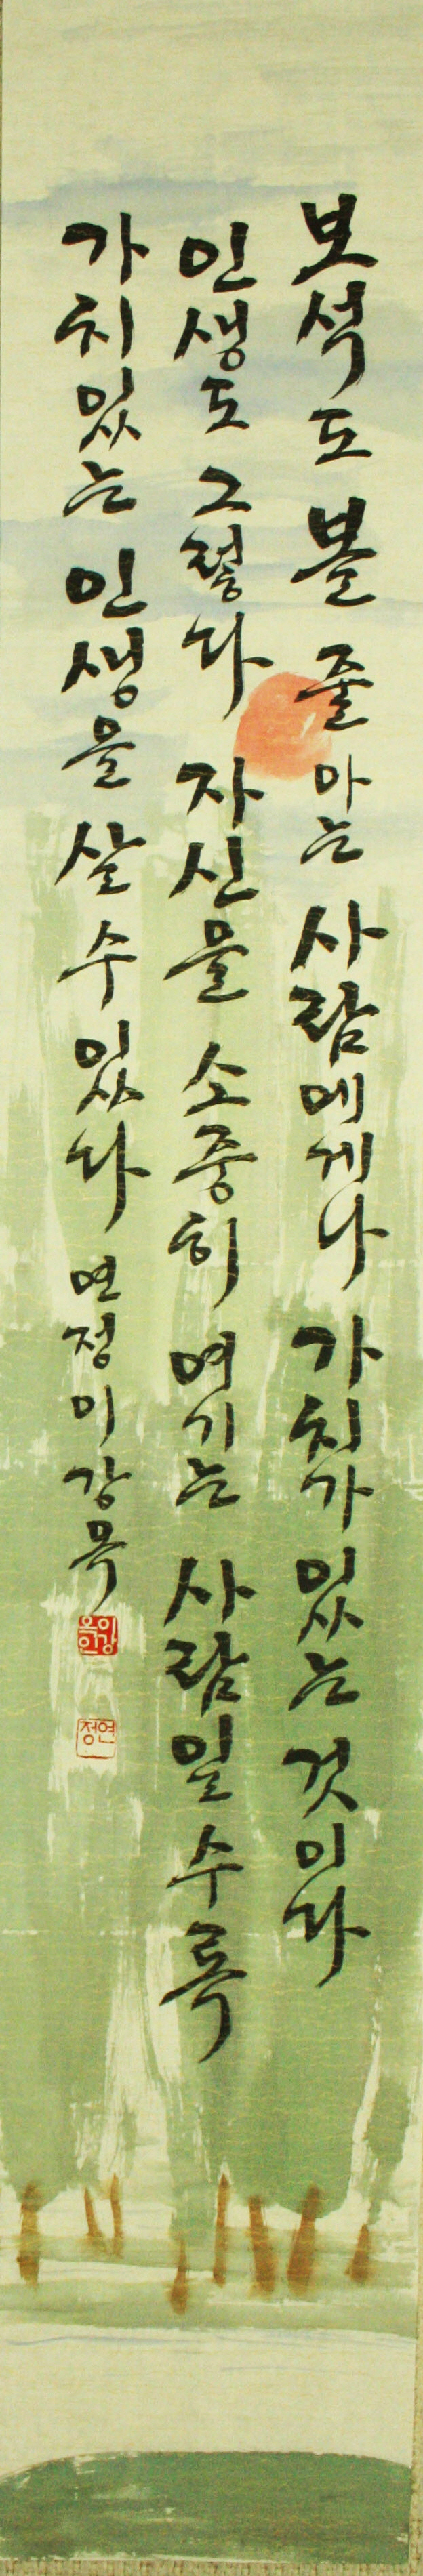 보석도 볼 줄 아는 사람에게나 가치가 있는 것이다
인생도 그렇다 자신을 소중히 여기는 사람일수록
가치있는 인생을 살 수 있다 연정 이강옥
이강옥인
연정